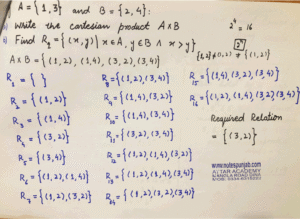 A = {1,3} and B = {2,4}:
Write the cartesian product A×B
2⁴ = 16
Find R = {(x,y) | x∈A, y∈B ∧ x>y}
A×B = {(1,2), (1,4), (3,2), (3,4)}
R₁ = { }
R₂ = {(1,2)}
R₃ = {(1,4)}
R₄ = {(3,2)}
R₅ = {(3,4)}
R₆ = {(1,2),(1,4)}
R₇ = {(1,2),(3,2)}
R₈ = {(1,2),(3,4)}
R₉ = {(1,4),(3,2)}
R₁₀ = {(1,4),(3,4)}
R₁₁ = {(3,2),(3,4)}
R₁₂ = {(1,2),(1,4),(3,2)}
R₁₃ = {(1,2),(1,4),(3,4)}
R₁₄ = {(1,2),(3,2),(3,4)}
R₁₅ = {(1,4),(3,2),(3,4)}
R₁₆ = {(1,2),(1,4),(3,2),(3,4)}
Required Relation
= {(3,2)}
www.notespunjab.com